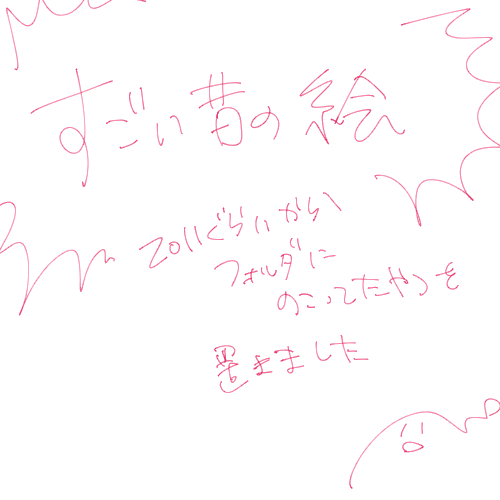 すごい昔の絵
2011ぐらいから
フォルダに
のこってたやつを
置きました